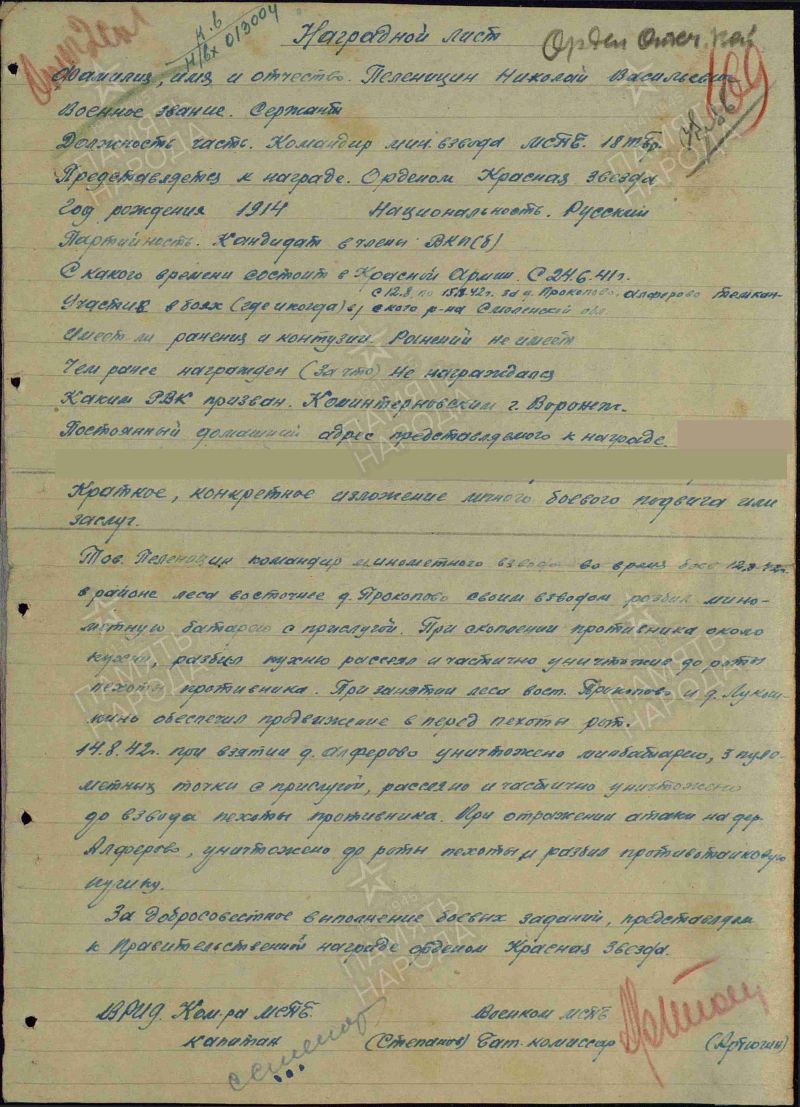 Наградной лист
Н/вх 013004
Орден Отеч.
Фамилия, имя и отчество. Пеленицин Николай Васильевич
Военное звание. Сержант
Должность часть. Командир мин. взвода МСПБ. 18 тбр.
Представляется к награде. Орденом Красная Звезда
Год рождения 1914 Национальность. Русский
Партийность. Кандидат в члены ВКП(б)
С какого времени состоит в Красной Армии. С 24.6.41г.
с 12.8. по 15.8.42г. за д. Прокопово, Алферово Темкин-
Участие в боях (где и когда) ского р-на Смоленской обл.
Имеет ли ранения и контузии. Ранений не имеет
Чем ранее награжден (за что) Не награждался
Каким РВК призван. Коминтерновским г. Воронеж.
Постоянный домашний адрес представляемого к награде.
Краткое, конкретное изложение личного боевого подвига или
заслуг.
Тов. Пеленицин командир минометного взвода во время боев 12.8.42г.
в районе леса восточнее д. Прокопово своим взводом разбил мино-
метную батарею с прислугой. При скоплении противника около
кухни, разбил кухню рассеял и частично уничтожив до роты
пехоты противника. При занятии леса вост. Прокопово и д. Лукош-
кино обеспечил продвижение в перед пехоты рот.
14.8.42г. при взятии д. Алферово уничтожено минбатарею, 3 пуле-
метных точки с прислугой, рассеяно и частично уничтожено
до взвода пехоты противника. При отражении атаки на дер.
Алферово, уничтожено до роты пехоты и разбил противотанковую
пушку.
За добросовестное выполнение боевых заданий, представляем
к Правительственной награде орденом Красная Звезда.
ВРИД. Ком-ра МСПБ. Военком МСПБ
капитан (Степанов) Бат. комиссар (Артюгин)
ПАМЯТЬ
НАРОДА